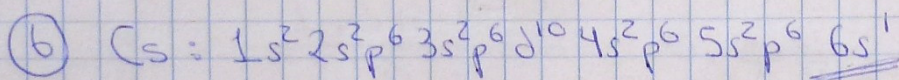 6 Cs : 1s² 2s²p⁶ 3s²p⁶d¹⁰ 4s²p⁶ 5s²p⁶ 6s¹